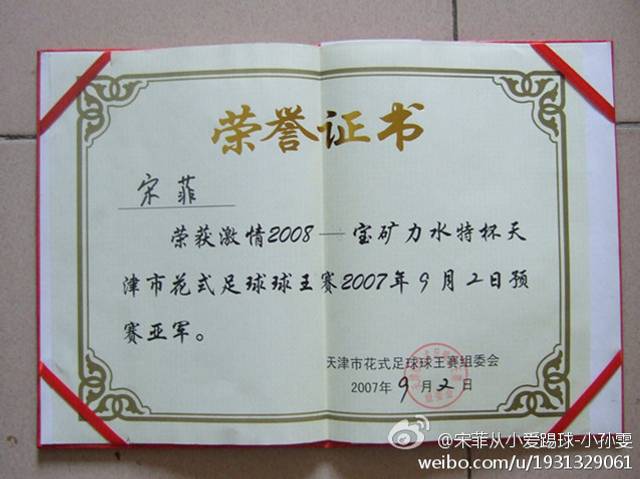 荣誉证书
宋菲
荣获激情2008——宝矿力水特杯天
津市花式足球球王赛2007年9月2日预
赛亚军。
天津市花式足球球王赛组委会
2007年9月2日
@宋菲从小爱踢球-小孙雯
weibo.com/u/1931329061